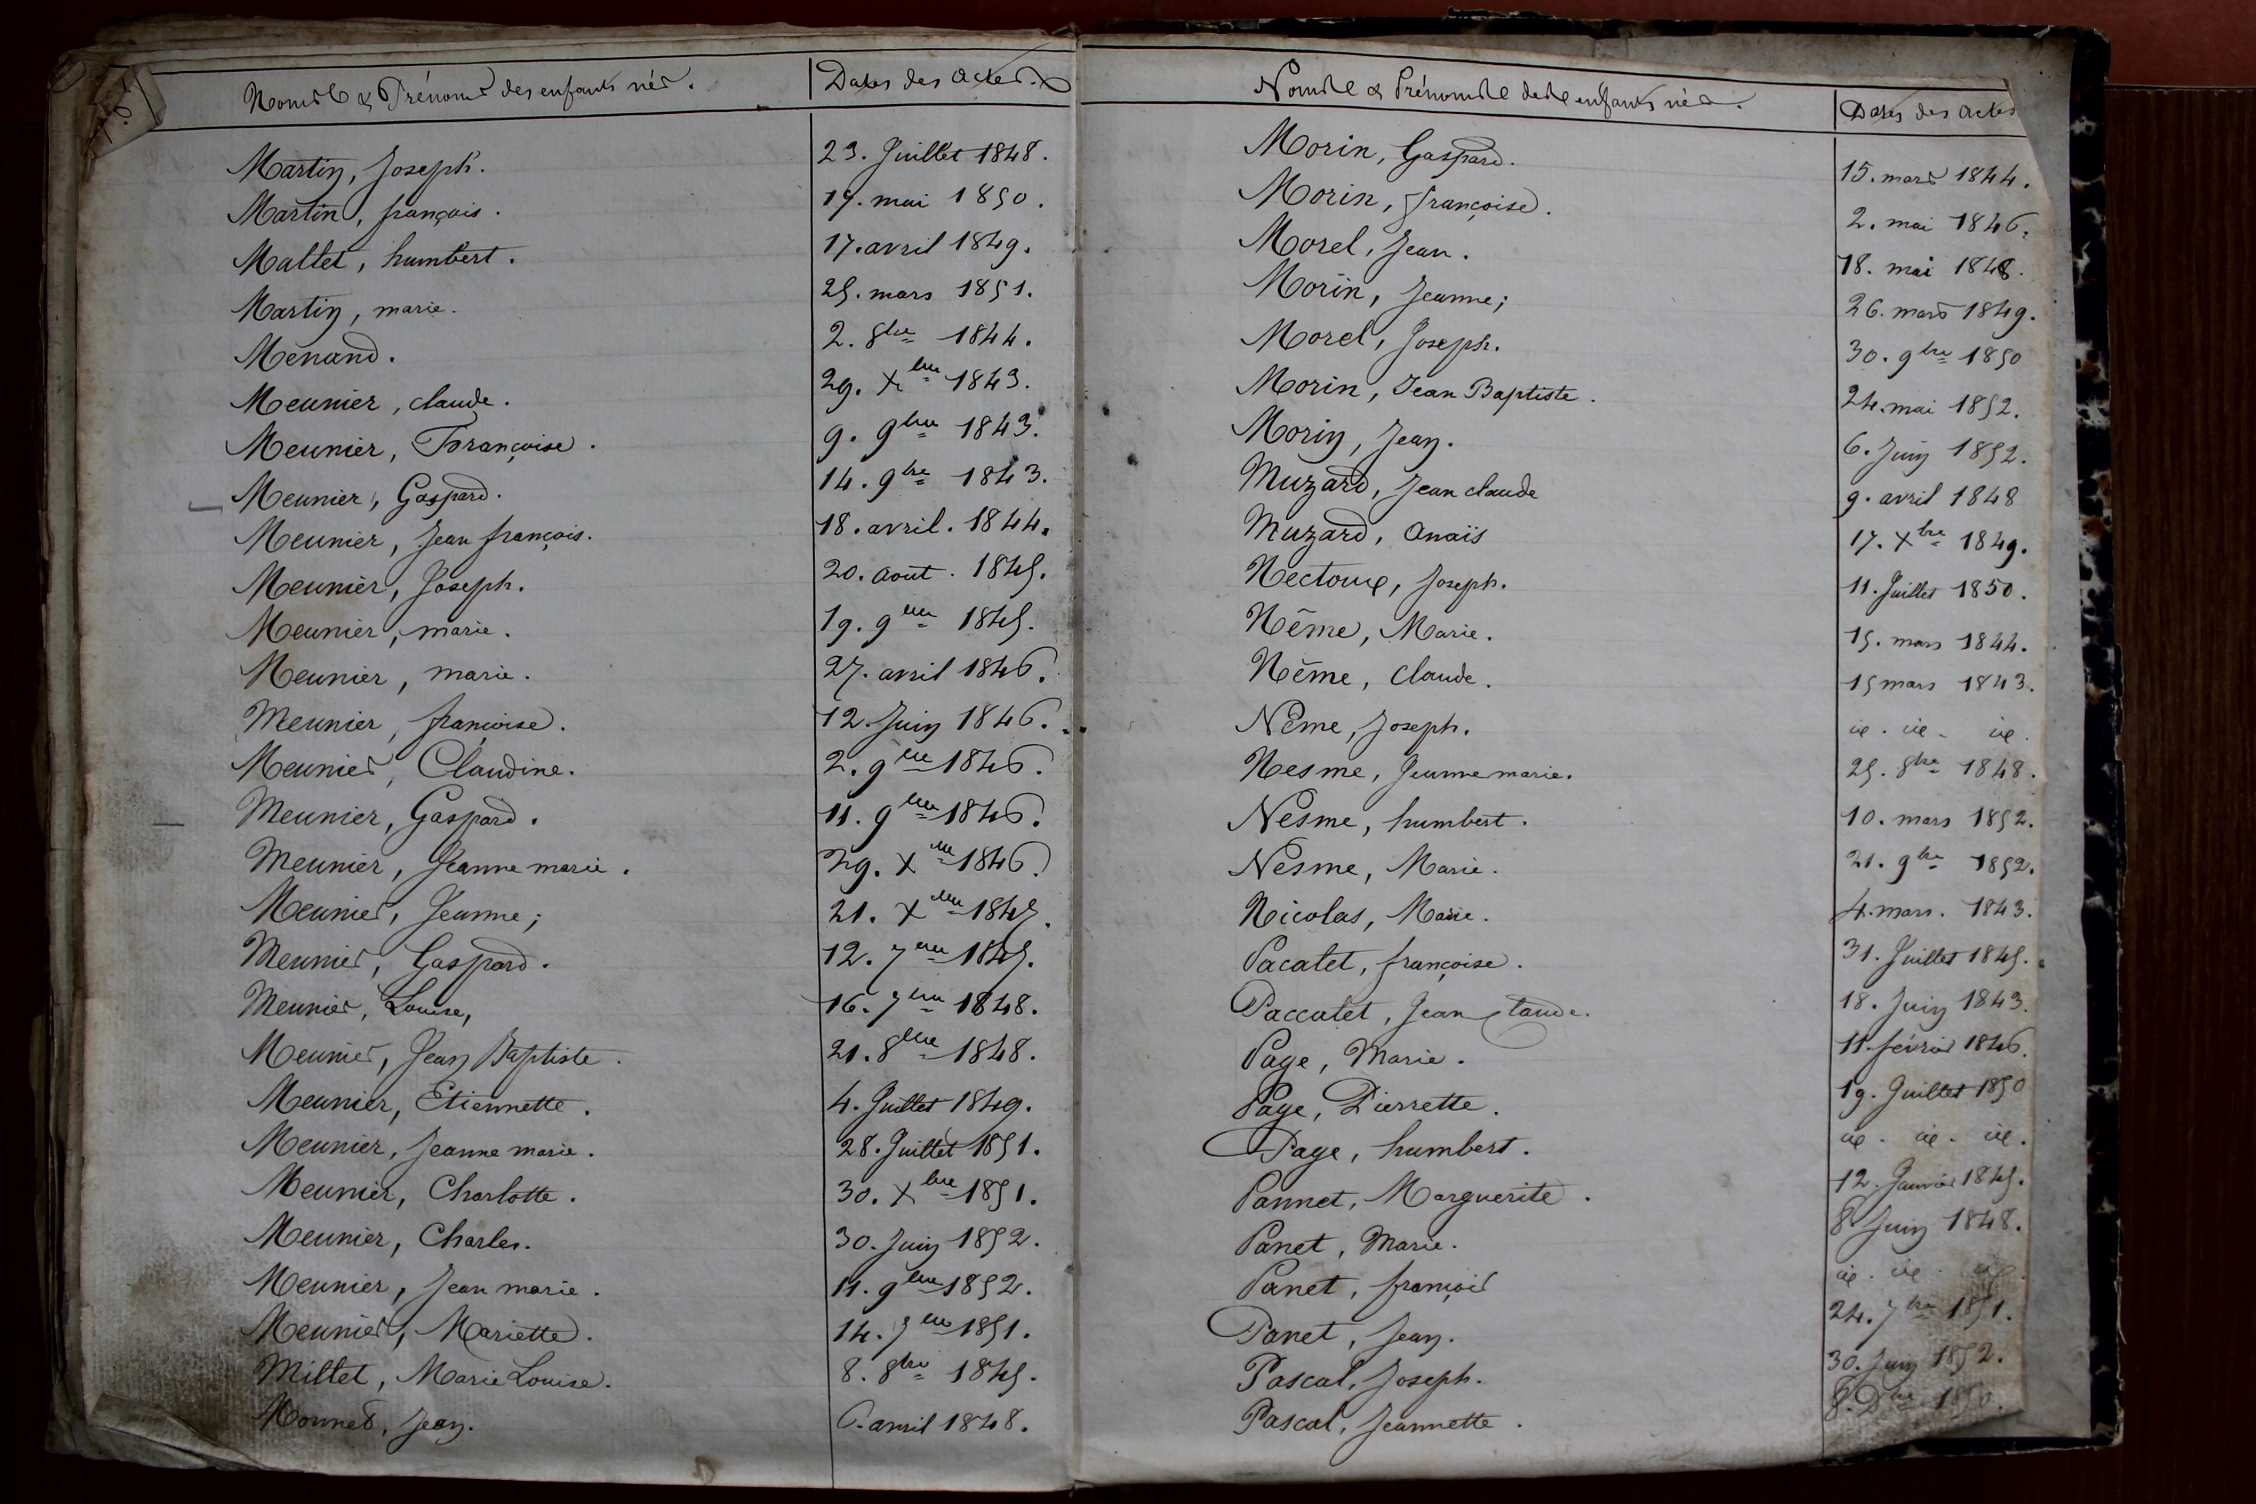 Noms & Prénoms des enfants nés.
Dates des actes.
Martin, Joseph. 23. Juillet 1848.
Martin, françois. 19. mai 1850.
Mallet, humbert. 17. avril 1849.
Martin, marie. 25. mars 1851.
Menand. 2. 8bre 1844.
Meunier, claude. 29. Xbre 1843.
Meunier, Françoise. 9. 9bre 1843.
Meunier, Gaspard. 14. 9bre 1843.
Meunier, Jean françois. 18. avril. 1844.
Meunier, Joseph. 20. aout. 1845.
Meunier, marie. 19. 9bre 1845.
Meunier, marie. 27. avril 1846.
Meunier, françoise. 12. Juin 1846.
Meunier, Claudine. 2. 9bre 1846.
Meunier, Gaspard. 11. 9bre 1846.
Meunier, Jeanne marie. 29. Xbre 1846.
Meunier, Jeanne; 21. Xbre
Meunier, Gaspard. 12. 7bre 1845.
Meunier, Louise, 16. 7bre 1848.
Meunier, Jean Baptiste. 21. 8bre 1848.
Meunier, Etiennette. 4. Juillet 1849.
Meunier, Jeanne marie. 28. Juillet 1851.
Meunier, Charlotte. 30. Xbre 1851.
Meunier, Charles. 30. Juin 1852.
Meunier, Jean marie. 11. 9bre 1852.
Meunier, Mariette. 14. 7bre 1851.
Millet, Marie Louise. 8. 8bre 1845.
Monnet, Jean. 6. avril 1848.
Noms & Prénoms des enfants nés.
Dates des actes
Morin, Gaspard. 15. mars 1844.
Morin, françoise. 2. mai 1846.
Morel, Jean. 18. mai 1848.
Morin, Jeanne; 26. mars 1849.
Morel, Joseph. 30. 9bre 1850
Morin, Jean Baptiste. 24. mai 1852.
Morin, Jean. 6. Juin 1852.
Muzard, Jean claude 9. avril 1848
Muzard, Anaïs 17. Xbre 1849.
Nectoux, Joseph. 11. Juillet 1850.
Nême, Marie. 15. mars 1844.
Nême, Claude. 15 mars 1843.
Nême, Joseph. id. id. id.
Nesme, Jeanne marie. 25. 8bre 1848.
Nesme, humbert. 10. mars 1852.
Nesme, Marie. 21. 9bre 1852.
Nicolas, Marie. 4. mars. 1843.
Pacalet, françoise. 31. Juillet 1845.
Paccalet, Jean Claude. 18. Juin 1843.
Page, Marie. 11. février 1846.
Page, Pierrette. 19. Juillet 1850
Page, humbert. id. id. id.
Pannet, Marguerite. 12. Janvier 1845.
Panet, Marie. 8 Juin 1848.
Panet, françois id. id. id.
Panet, Jean. 24. 7bre 1851.
Pascal, Joseph. 30. Juin 1852.
Pascal, Jeannette. 1850.